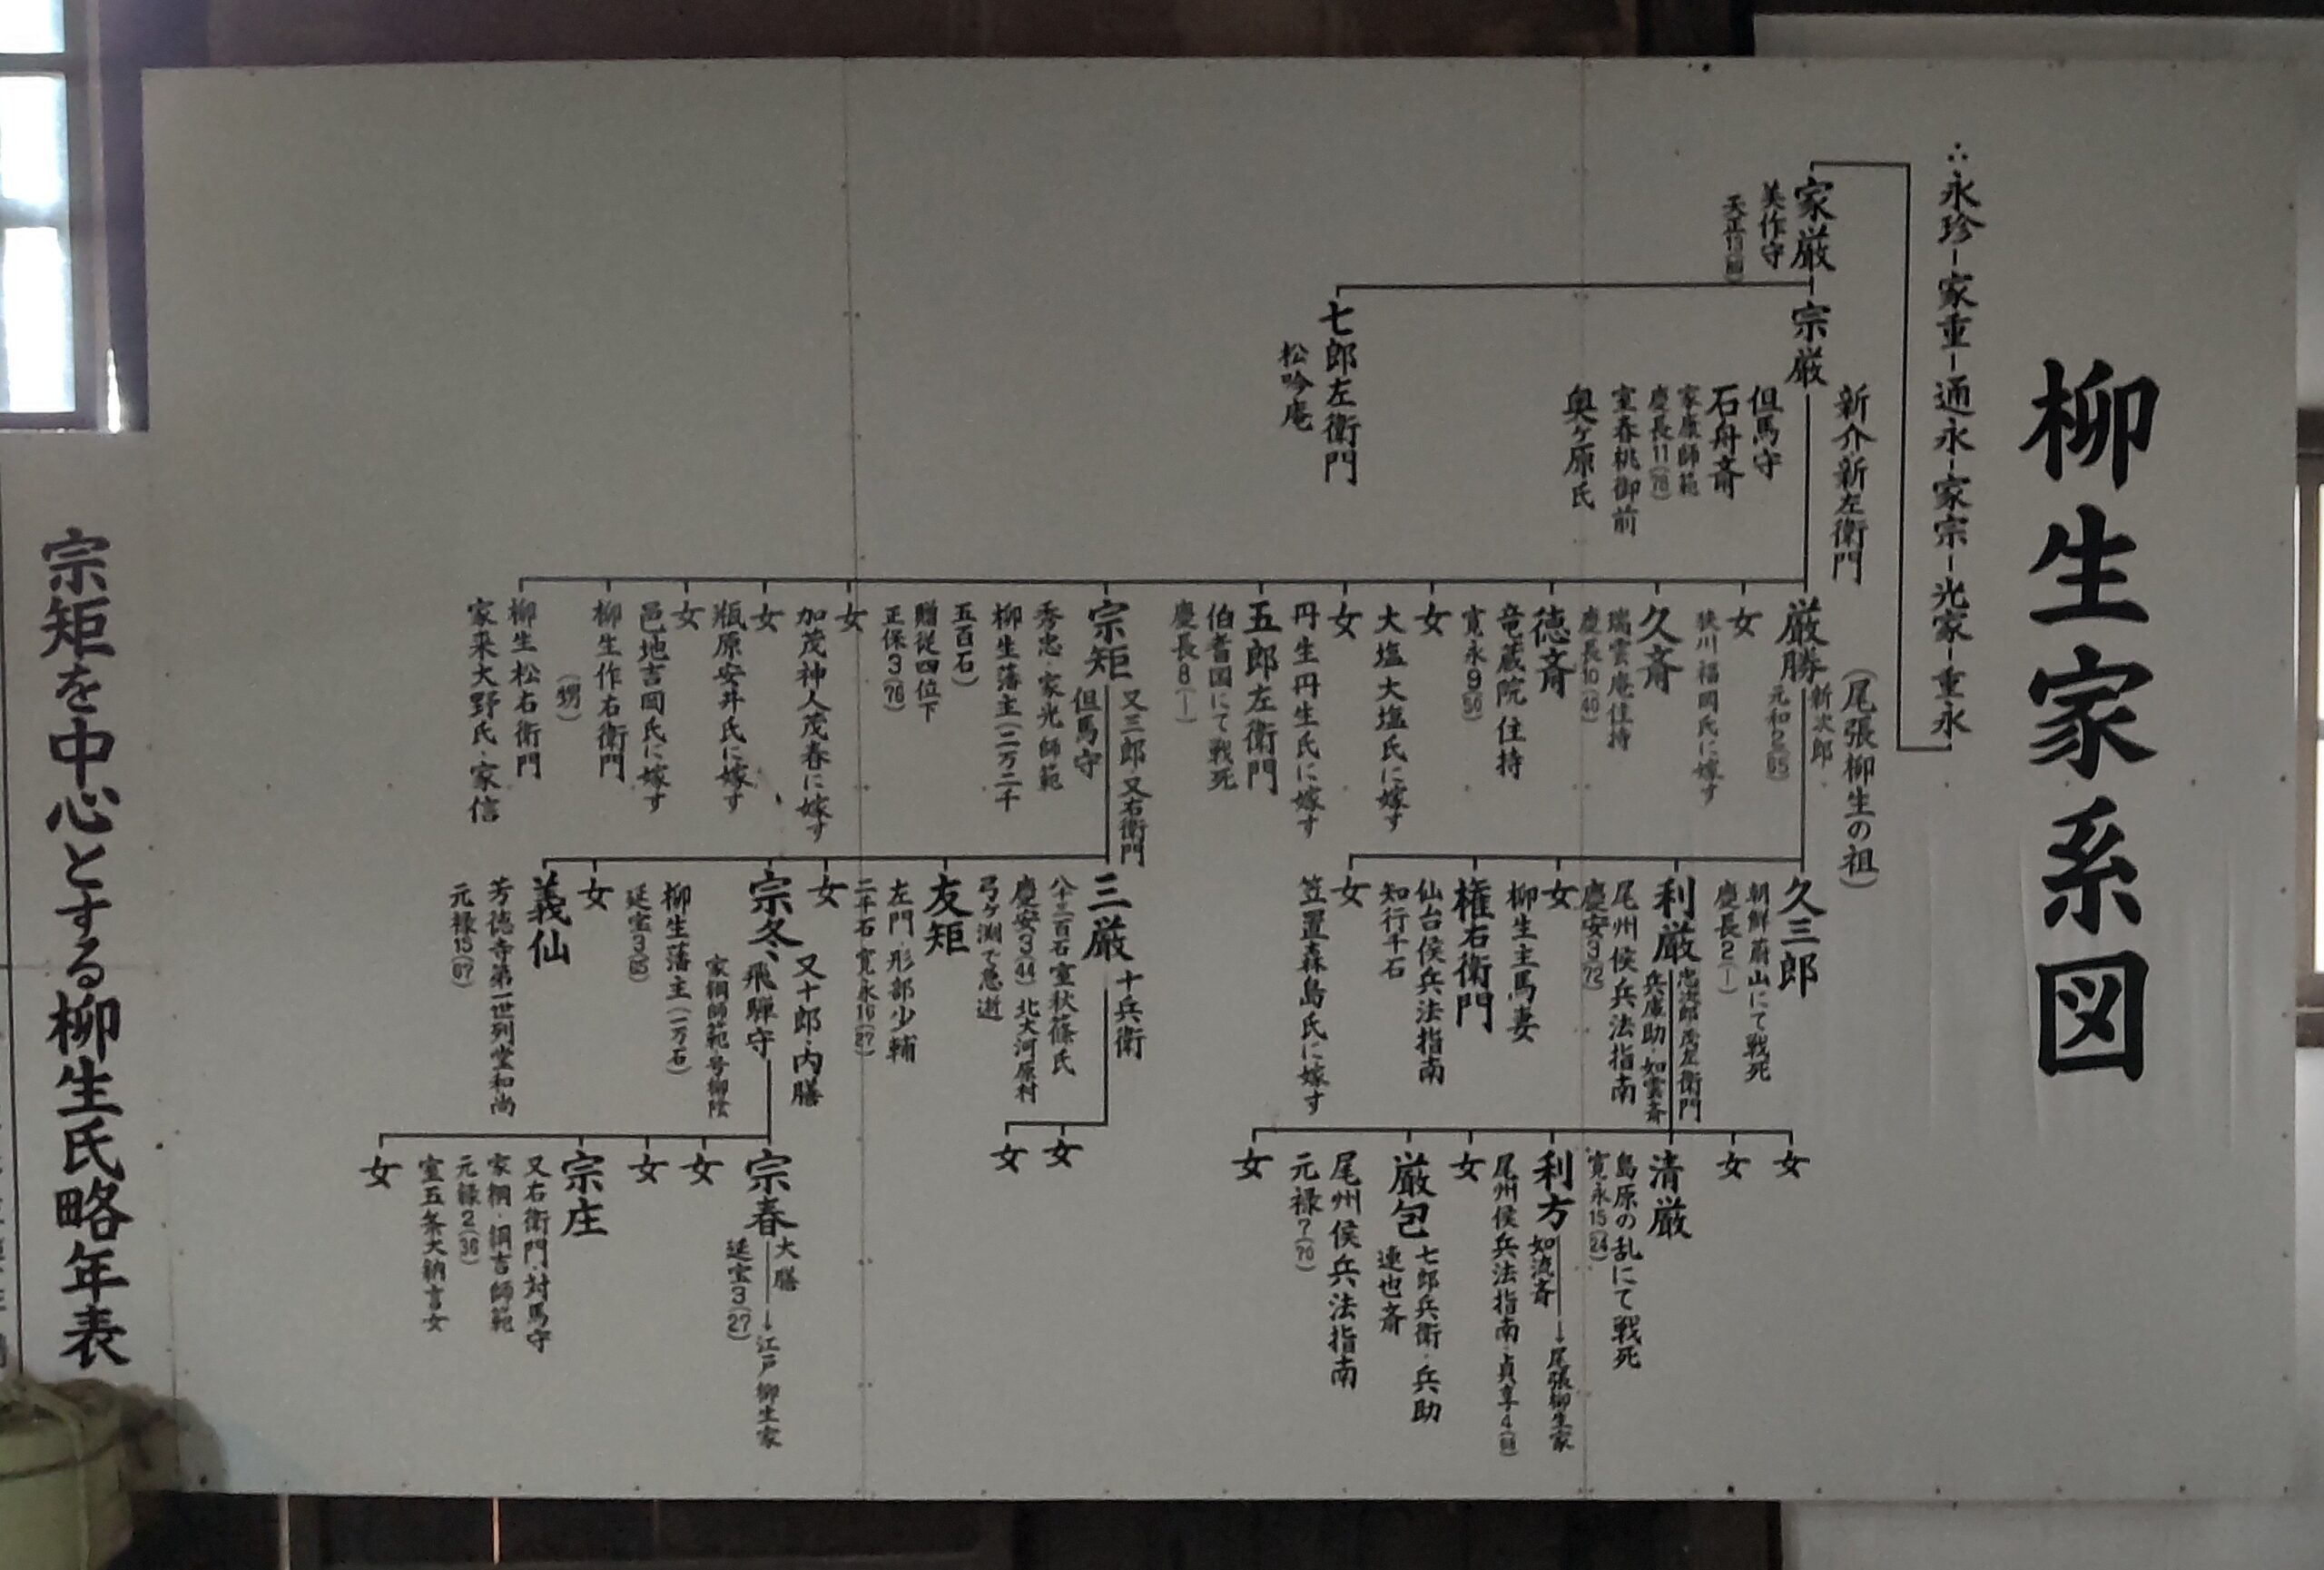 柳生家系図
∴永珍-家重-通永-家宗-光家-重永
家厳
美作守
宗厳
新介新左衛門
但馬守
石舟斎
家康師範
慶長11(78)
室春桃御前
奥ケ原氏
七郎左衛門
松吟庵
厳勝
(尾張柳生の祖)
新次郎
元和2(65)
女
狭川福岡氏に嫁す
久斎
瑞雲庵住持
慶長10(40)
徳斎
竜蔵院住持
寛永9(56)
女
大塩大塩氏に嫁す
女
丹生丹生氏に嫁す
五郎左衛門
伯耆国にて戦死
慶長8(一)
宗矩
又三郎・又右衛門
但馬守
秀忠・家光師範
柳生藩主(二万二千
五百石)
贈従四位下
正保3(76)
女
加茂神人茂春に嫁す
女
瓶原安井氏に嫁す
女
邑地吉岡氏に嫁す
柳生作右衛門
(甥)
柳生松右衛門
家来大野氏・家信
久三郎
朝鮮蔚山にて戦死
慶長2(一)
利厳
忠次郎茂左衛門
兵庫助・如雲斎
尾州侯兵法指南
慶安3(72)
女
柳生主馬妻
権右衛門
仙台侯兵法指南
知行千石
女
笠置森島氏に嫁す
三厳
十兵衛
八千三百石室秋篠氏
慶安3(44)北大河原村
弓ヶ淵で急逝
友矩
左門・形部少輔
二千石・寛永16(27)
女
宗冬
又十郎・内膳
飛騨守
家綱師範号柳陰
柳生藩主(一万石)
延宝3(63)
女
義仙
芳徳寺第一世列堂和尚
元禄15(67)
女
女
清厳
島原の乱にて戦死
寛永15(24)
利方
如流斎
→尾張柳生家
尾州侯兵法指南・貞享4
女
厳包
七郎兵衛・兵助
連也斎
尾州侯兵法指南
元禄7(70)
女
女
女
宗春
大膳
→江戸柳生家
延宝3(27)
女
女
宗庄
又右衛門・対馬守
家綱・綱吉師範
元禄2(36)
室五条大納言女
女
宗矩を中心とする柳生氏略年表